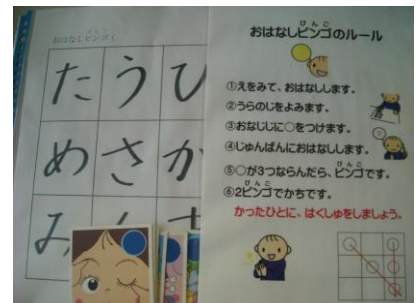 おはなしビンゴ
た う ひ
め さ か
み
おはなしビンゴのルール
びんご
①えをみて、おはなしします。
②うらのじをよみます。
③おなじじに○をつけます。
④じゅんばんにおはなしします。
びんご
⑤○が3つならんだら、ビンゴです。
びんご
⑥2ビンゴでかちです。
かったひとに、はくしゅをしましょう。